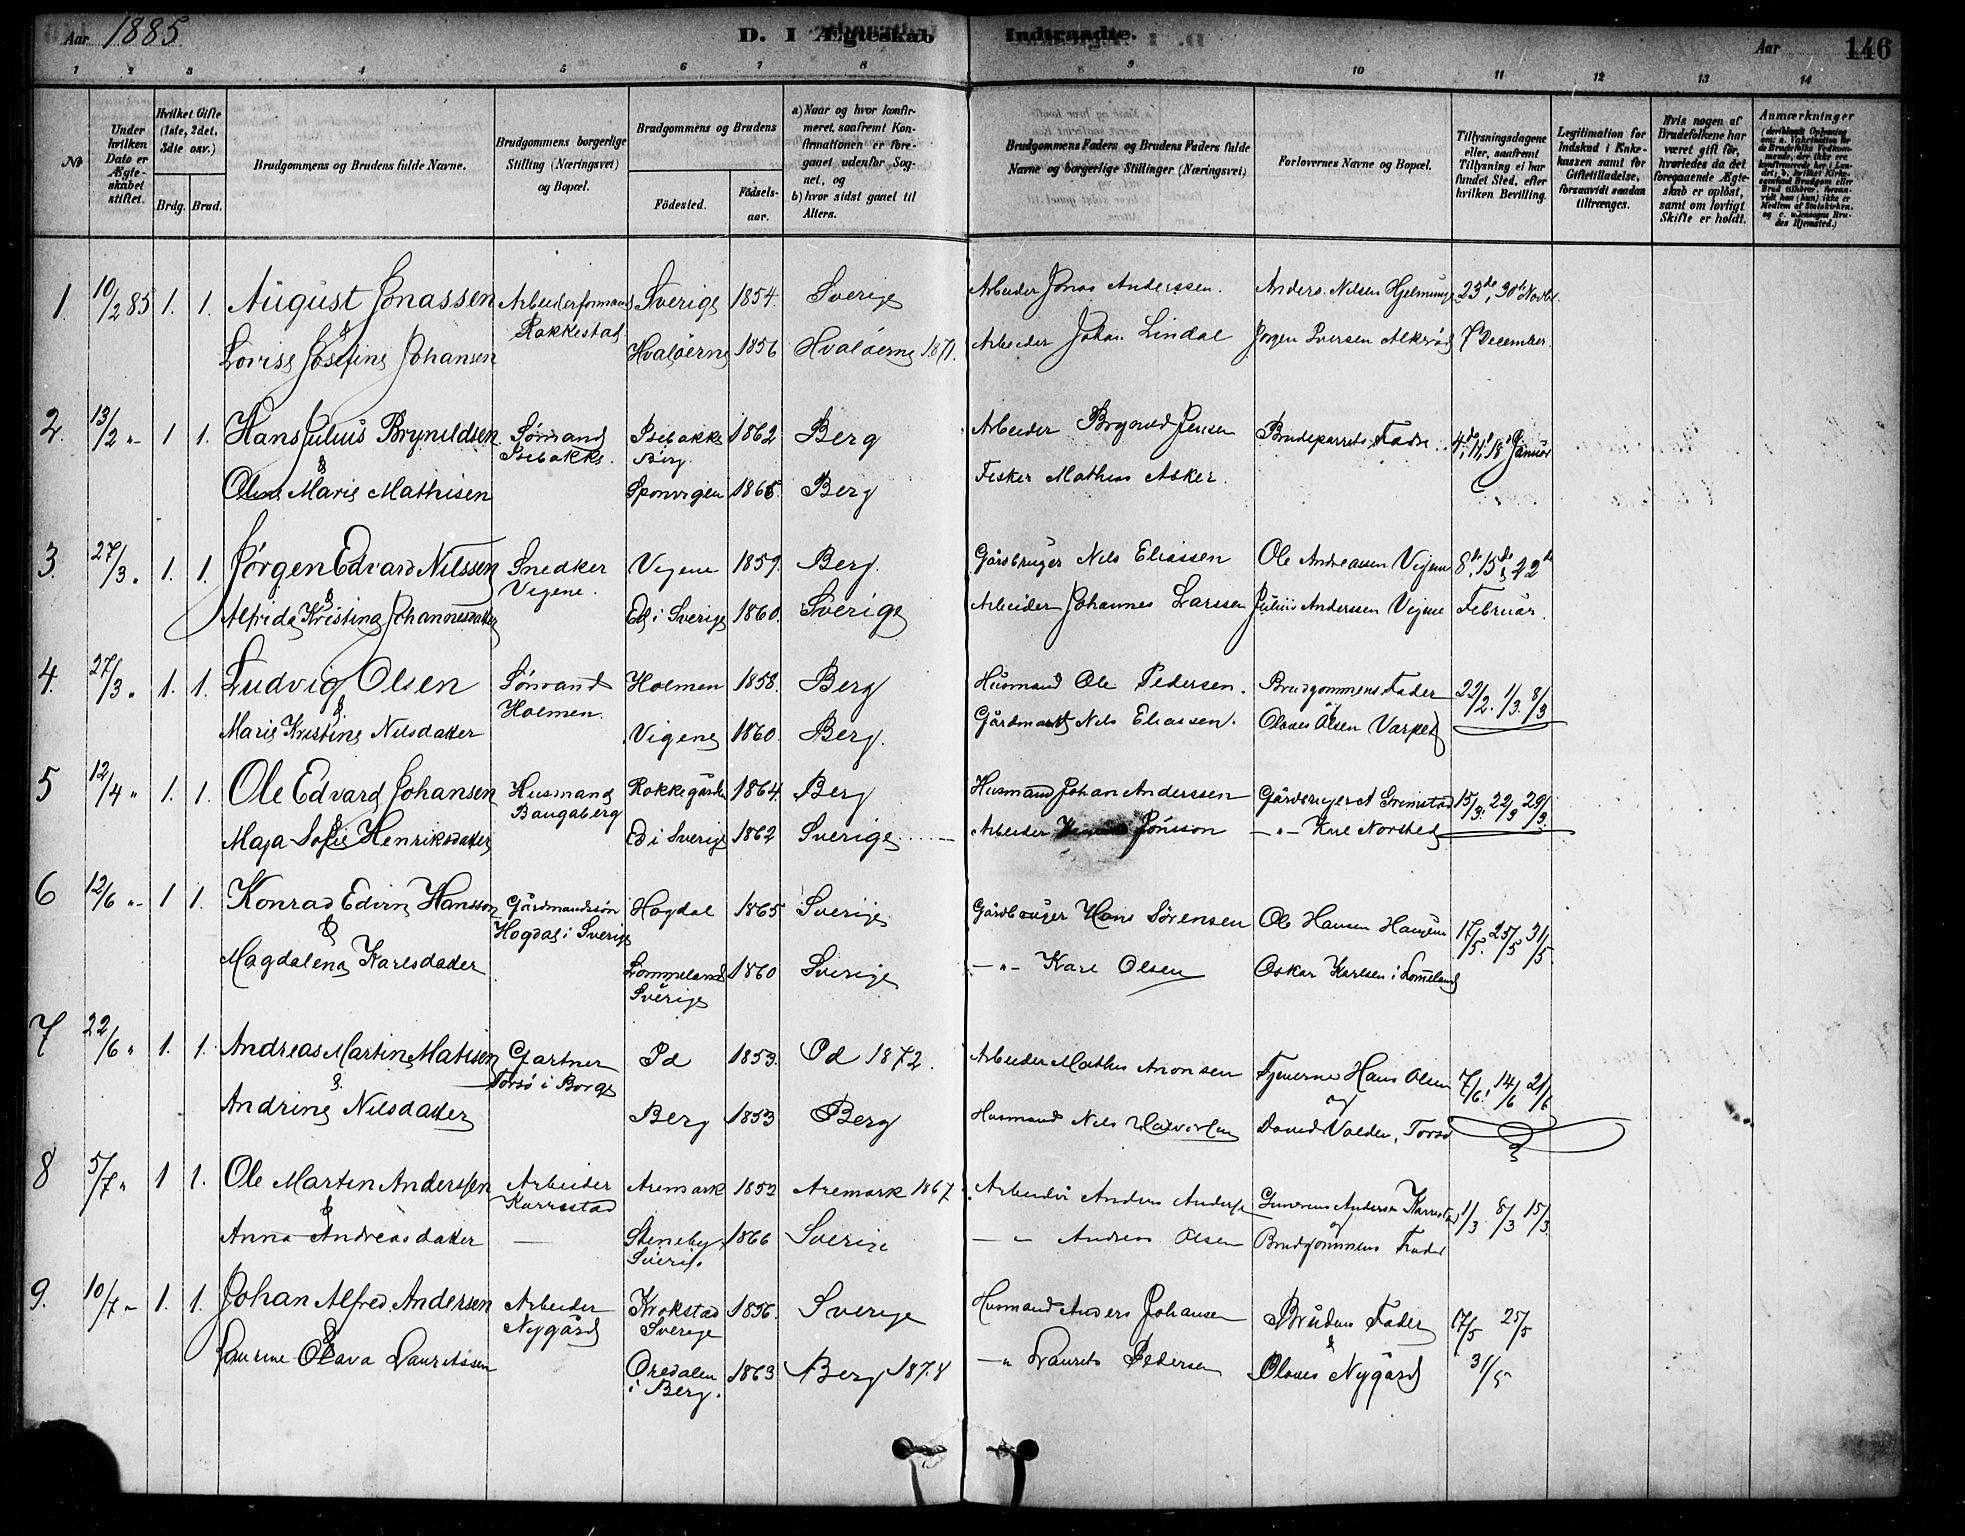 Aar 1885.
D. I Ægteskab Indtraadte.
Aar 146
1 2 3 4 5 6 7 8 9 10 11 12 13 14
No
Under hvilken Dato er Ægteskabet stiftet.
Hvilket Gifte (1ste, 2det, 3die osv.)
Brdg. Brud.
Brudgommens og Brudens fulde Navne.
Brudgommens borgerlige Stilling (Næringsvei) og Bopæl.
Brudgommens og Brudens
Födested.
Födselsaar.
a) Naar og hvor konfirmeret, saafremt Konfirmationen er foregaaet udenfor Sognet, og
b) hvor sidst gaaet til Alters.
Brudgommens Faders og Brudens Faders fulde Navne og borgerlige Stillinger (Næringsvei)
Forlovernes Navne og Bopæl.
Tillysningsdagene eller, saafremt Tillysning ei har fundet Sted, efter hvilken Bevilling.
Legitimation for Indskud i Enkekassen samt for Giftetilladelse, forsaavidt saadan tiltrænges.
Hvis nogen af Brudefolkene har været gift för, hvorledes da det foregaaende Ægteskab er oplöst, samt om lovligt Skifte er holdt.
Anmærkninger
1. 10/2 85 1. 1. August Jonassen Arbeiderformand Sverige 1854. Sverige Arbeider Jonas Anderssen. Anders Nilsen Hjelmunge 23de, 30te Novbr.
& Rakkestad
Lovise Josefine Johansen Hvaløerne 1856 Hvaløerne 1871. Arbeider Johan Lindal Jørgen Iversen 7de December.
2. 13/2 „ 1 1. Hans Julius Brynildsen Sømand Isebakke 1862 Berg Arbeider Brynild Jensen Brudeparrets Fader 4de, 11te, 18de Januar
& Isebakke. Berg.
Oline Marie Mathisen Sponvigen 1865. Berg Fisker Mathias Asker.
3. 27/3 „ 1. 1. Jørgen Edvard Nilssen Snedker Vigene 1859. Berg. Gårdbruger Nils Eliassen Ole Andreassen Vigene 8de, 15de & 22de
& Vigene.
Alfrida Kristina Johannesdatter Ed i Sverige 1860. Sverige Arbeider Johannes Larssen Julius Anderssen Vigene Februar.
4. 27/3 „ 1. 1. Ludvig Olsen Sømand Holmen 1858. Berg Husmand Ole Pedersen. Brudgommens Fader 22/2. 1/3. 8/3
& Holmen.
Marie Kristine Nilsdatter Vigene 1860. Berg. Gårdmand Nils Eliassen. Olaves Olsen
5 12/4 „ 1. 1. Ole Edvard Johansen Husmand Rokkegården 1864. Berg Husmand Johan Anderssen Gårdbruger A Grimstad 15/3. 22/3 29/3.
& Baugaberg
Maja Sofie Henriksdatter Ed i Sverige 1862 Sverige Arbeider Jonsson – „ – Karl Norsted
6 12/6 „ 1 1. Konrad Edvin Hansson Gårdmandssøn Hogdal 1865 Sverige Gårdbruger Hans Sörensen Ole Hansen Haugen 17/5. 25/5 31/5
& Hogdal i Sverige
Magdalena Karlsdatter Lommeland 1860 Sverige – „ – Karl Olsen Oskar Karlsen i Lommeland
Sverige
7 22/6 „ 1. 1. Andreas Martin Matisen Gartner Id 1853. Id 1872. Arbeider Mathis Aronsen Tjenerne Hans Olsen 7/6. 14/6 21/6
& Torsø i Borge og
Andrine Nilsdatter Berg 1853 Berg Husmand Nils Halvorsen David Volden, Torsø
8 5/7 „ 1 1. Ole Martin Anderssen Arbeider Aremark 1853 Aremark 1867. Arbeider Anders Anders. Andersen Karrestad 1/3. 8/3 15/3.
& Karrestad og
Anna Andreasdatter — Steneby 1866 Sverige – „ Andreas Olsen Brudgommens Fader
Sverig.
9. 10/7 „ 1. 1. Johan Alfred Andersen Arbeider Krokstad 1856. Sverige Husmand Anders Johansen Brudens Fader 17/5 25/5
& Nygård Sverige &
Laurine Olava Lauretssen Oredalen 1863 Berg 1878 – „ Laurits Pedersen Olaves Nygård 31/5
i Berg.